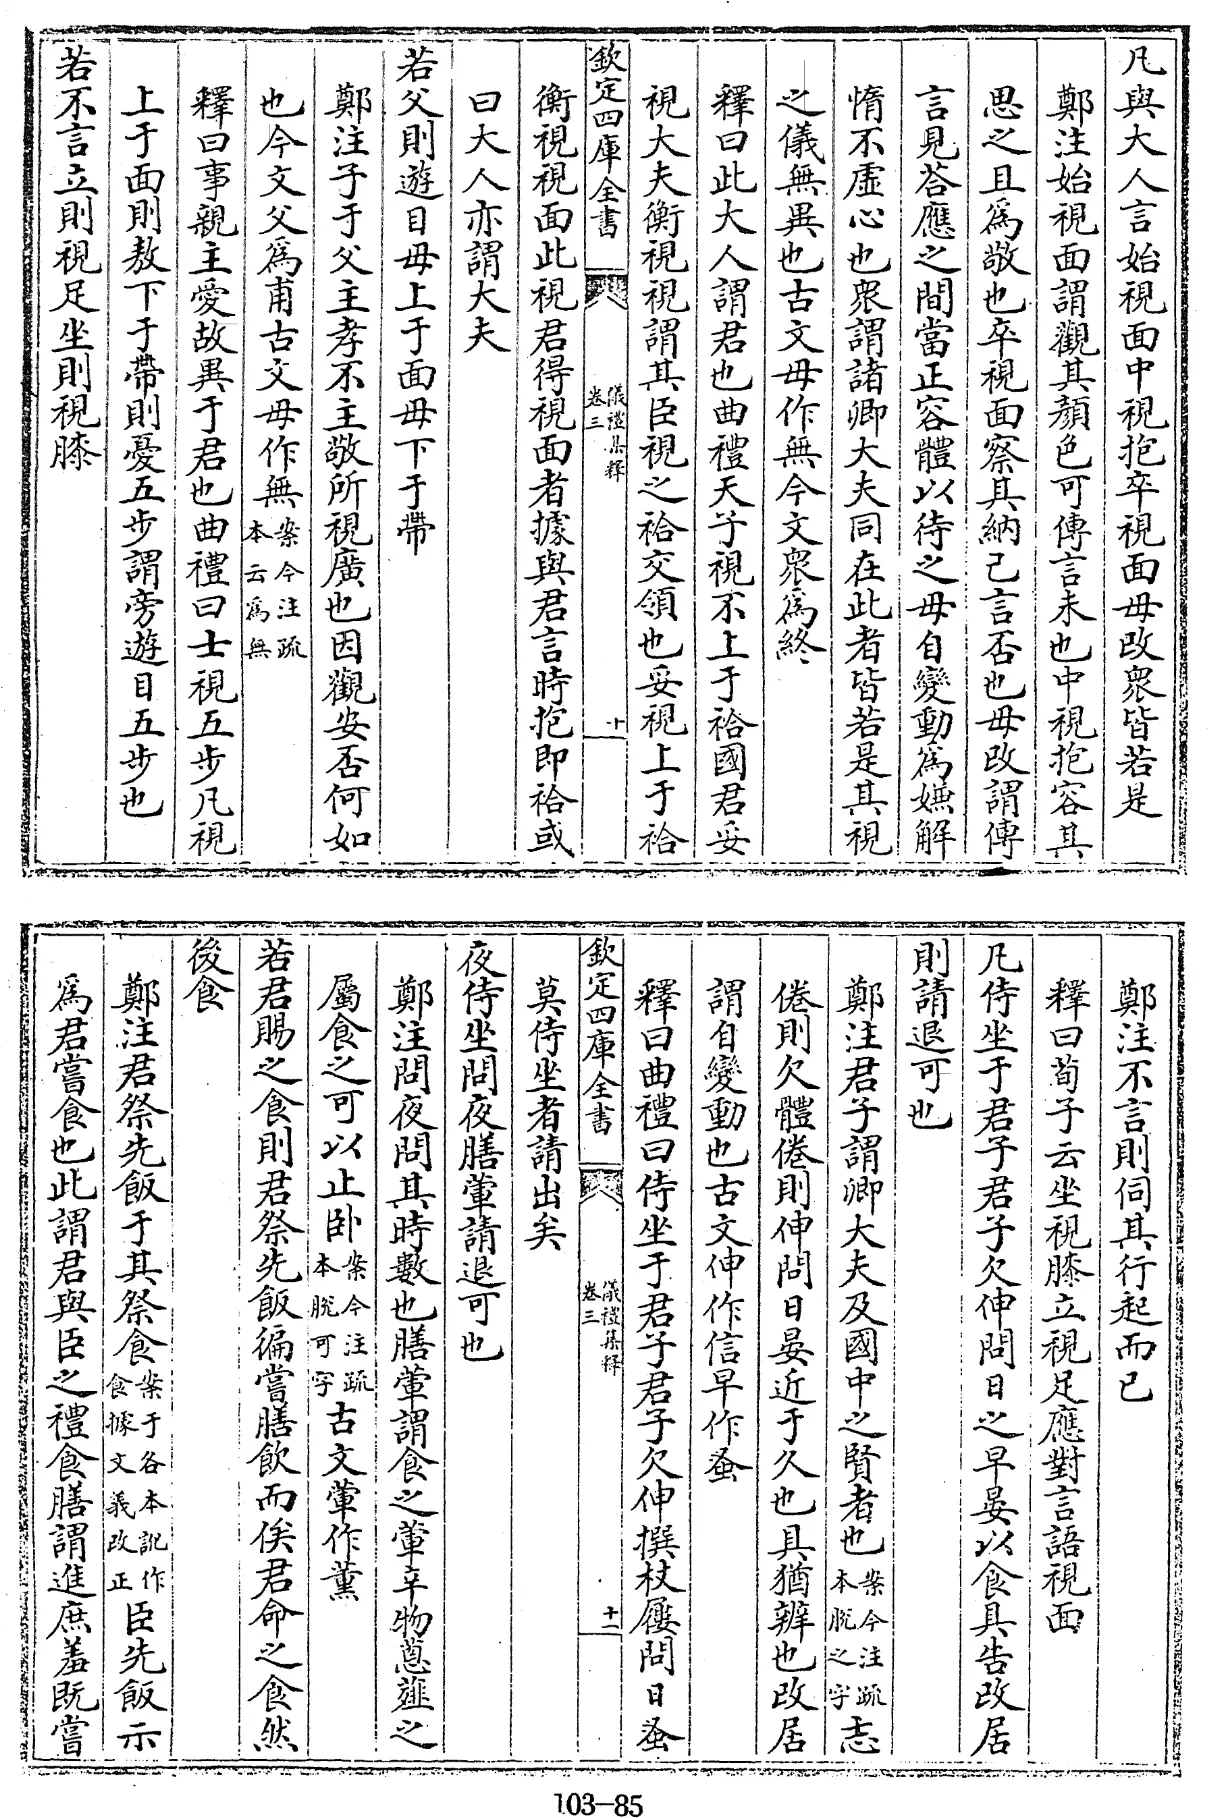 凡與大人言始視面中視抱卒視面毋改衆皆若是
鄭注始視面謂觀其顏色可傳言未也中視抱容其
思之且爲敬也卒視面察其納己言否也毋改謂傳
言見荅應之間當正容體以待之毋自變動爲嫌解
惰不虛心也衆謂諸卿大夫同在此者皆若是其視
之儀無異也古文毋作無今文衆爲終
釋曰此大人謂君也曲禮天子視不上于袷國君妥
視大夫衡視視謂其臣視之袷交領也妥視上于袷
欽定四庫全書
儀禮集釋
卷三
十
衡視視面此視君得視面者據與君言時抱即袷或
曰大人亦謂大夫
若父則遊目毋上于面毋下于帶
鄭注子于父主孝不主敬所視廣也因觀安否何如
也今文父爲甫古文毋作無案今注疏本云爲無
釋曰事親主愛故異于君也曲禮曰士視五步凡視
上于面則敖下于帶則憂五步謂旁遊目五步也
若不言立則視足坐則視膝
鄭注不言則伺其行起而已
釋曰荀子云坐視膝立視足應對言語視面
凡侍坐于君子君子欠伸問日之早晏以食具告改居
則請退可也
鄭注君子謂卿大夫及國中之賢者也案今注疏本脫之字志
倦則欠體倦則伸問日晏近于久也具猶辨也改居
謂自變動也古文伸作信早作蚤
釋曰曲禮曰侍坐于君子君子欠伸撰杖屨問日蚤
欽定四庫全書
儀禮集釋
卷三
十一
莫侍坐者請出矣
夜侍坐問夜膳葷請退可也
鄭注問夜問其時數也膳葷謂食之葷辛物蔥薤之
屬食之可以止卧案今注疏本脫可字古文葷作薰
若君賜之食則君祭先飯徧嘗膳飲而俟君命之食然
後食
鄭注君祭先飯于其祭食案于各本訛作食據文義改正臣先飯示
爲君嘗食也此謂君與臣之禮食膳謂進庶羞既嘗
103-85